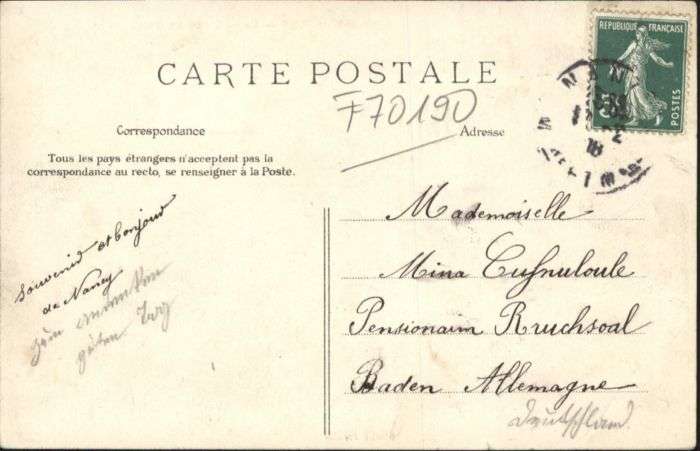 CARTE POSTALE
F70190
Correspondance
Adresse
Tous les pays étrangers n'acceptent pas la
correspondance au recto, se renseigner à la Poste.
REPUBLIQUE FRANÇAISE
POSTES
NAN
Souvenir et bonjour
de Nancy
guten Tag
Mademoiselle
Mina
Pensionam Bruchsal
Baden Allemagne
Deutschland